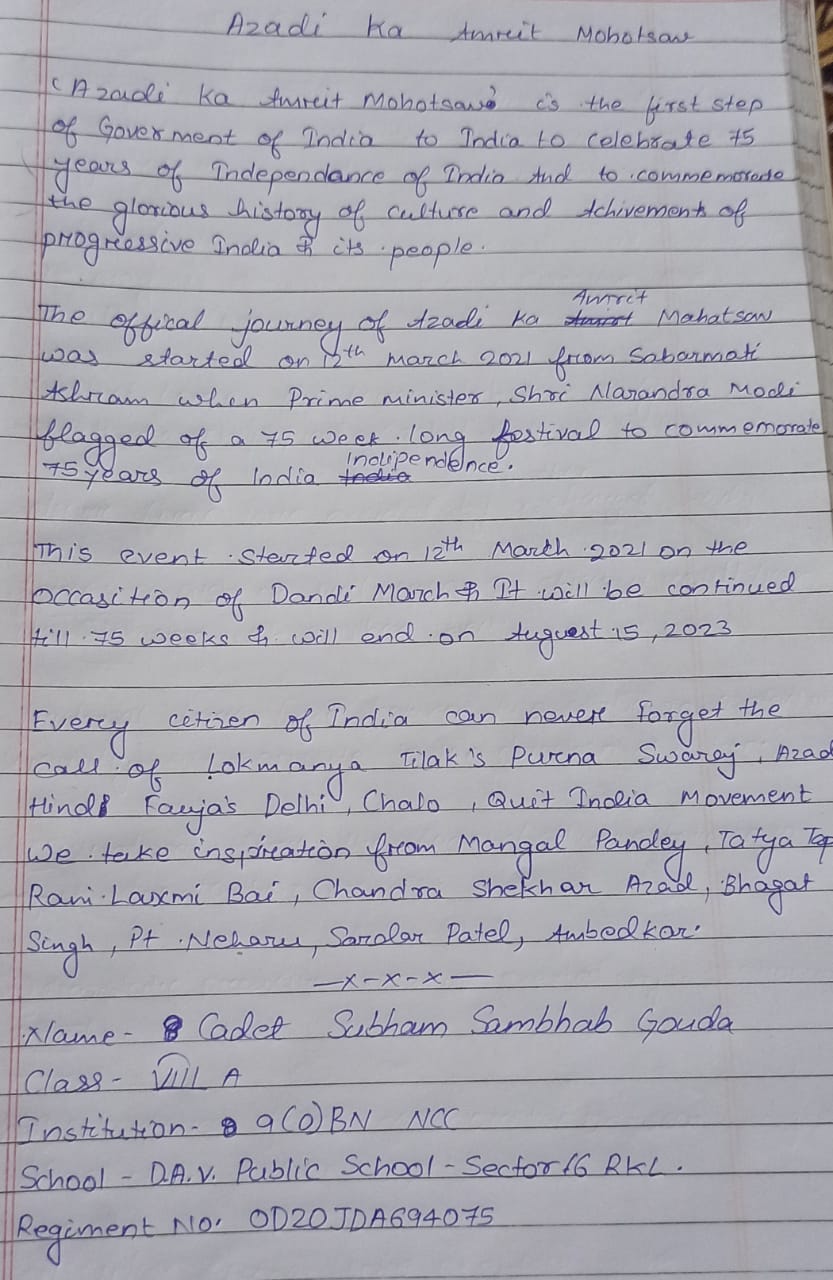 Azadi Ka Amrit Mohotsav
(Azadi Ka Amrit Mohotsav) is the first step
of Goverment of India to India to celebrate 75
years of Independance of India And to commemorate
the glorious history of culture and Achivements of
progressive India & its people.
The offical journey of Azadi Ka Amrit Mahatsav
was started on 12th march 2021 from Sabarmati
Ashram when Prime minister, Shri Narandra Modi
flagged of a 75 week long festival to commemorate
75 years of India Indipendence.
This event started on 12th March 2021 on the
occasition of Dandi March & It will be continued
till 75 weeks & will end on August 15, 2023
Every citizen of India can never forget the
call of Lokmanya Tilak's Purna Swaraj, Azad
Hind Fauja's Delhi, Chalo, Quit India Movement
We take inspiration from Mangal Pandey, Tatya Top
Rani Laxmi Bai, Chandra Shekhar Azad, Bhagat
Singh, Pt. Neharu, Sardar Patel, Ambedkar.
—x-x-x—
Name - Cadet Subham Sambhab Gouda
Class - VIII A
Institution - 9(O)BN NCC
School - D.A.V. Public School - Sector 16 RKL.
Regiment No. OD20JDA694075